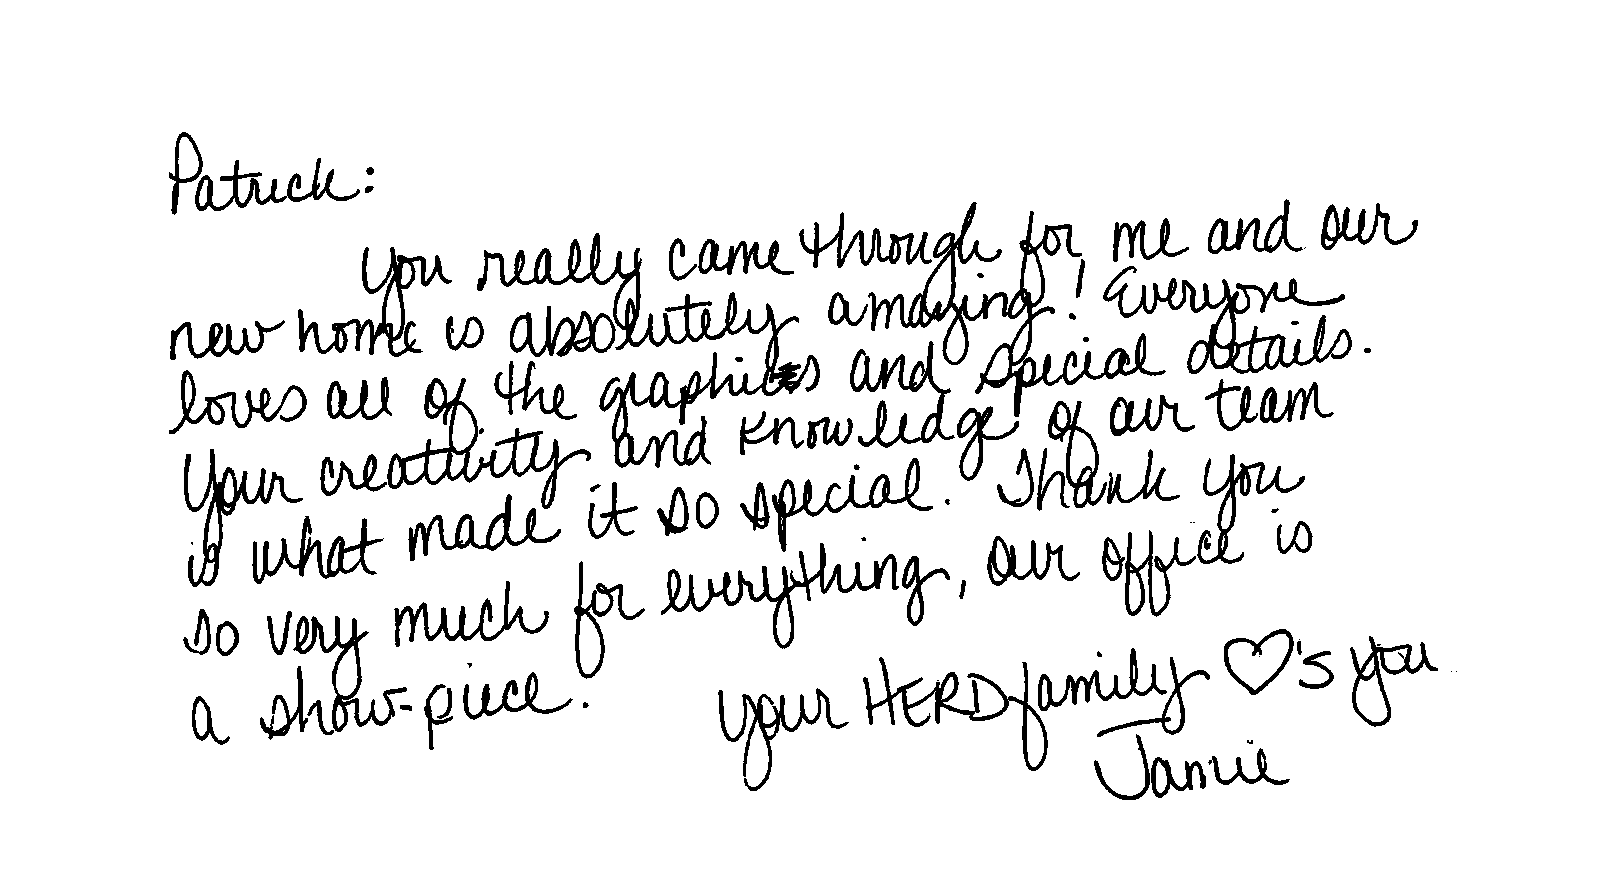 Patrick:
You really came through for me and our
new home is absolutely amazing! Everyone
loves all of the graphics and special details.
Your creativity and knowledge of our team
is what made it so special. Thank you
so very much for everything, our office is
a show-piece.
Your HERD family ♡'s you
Jamie